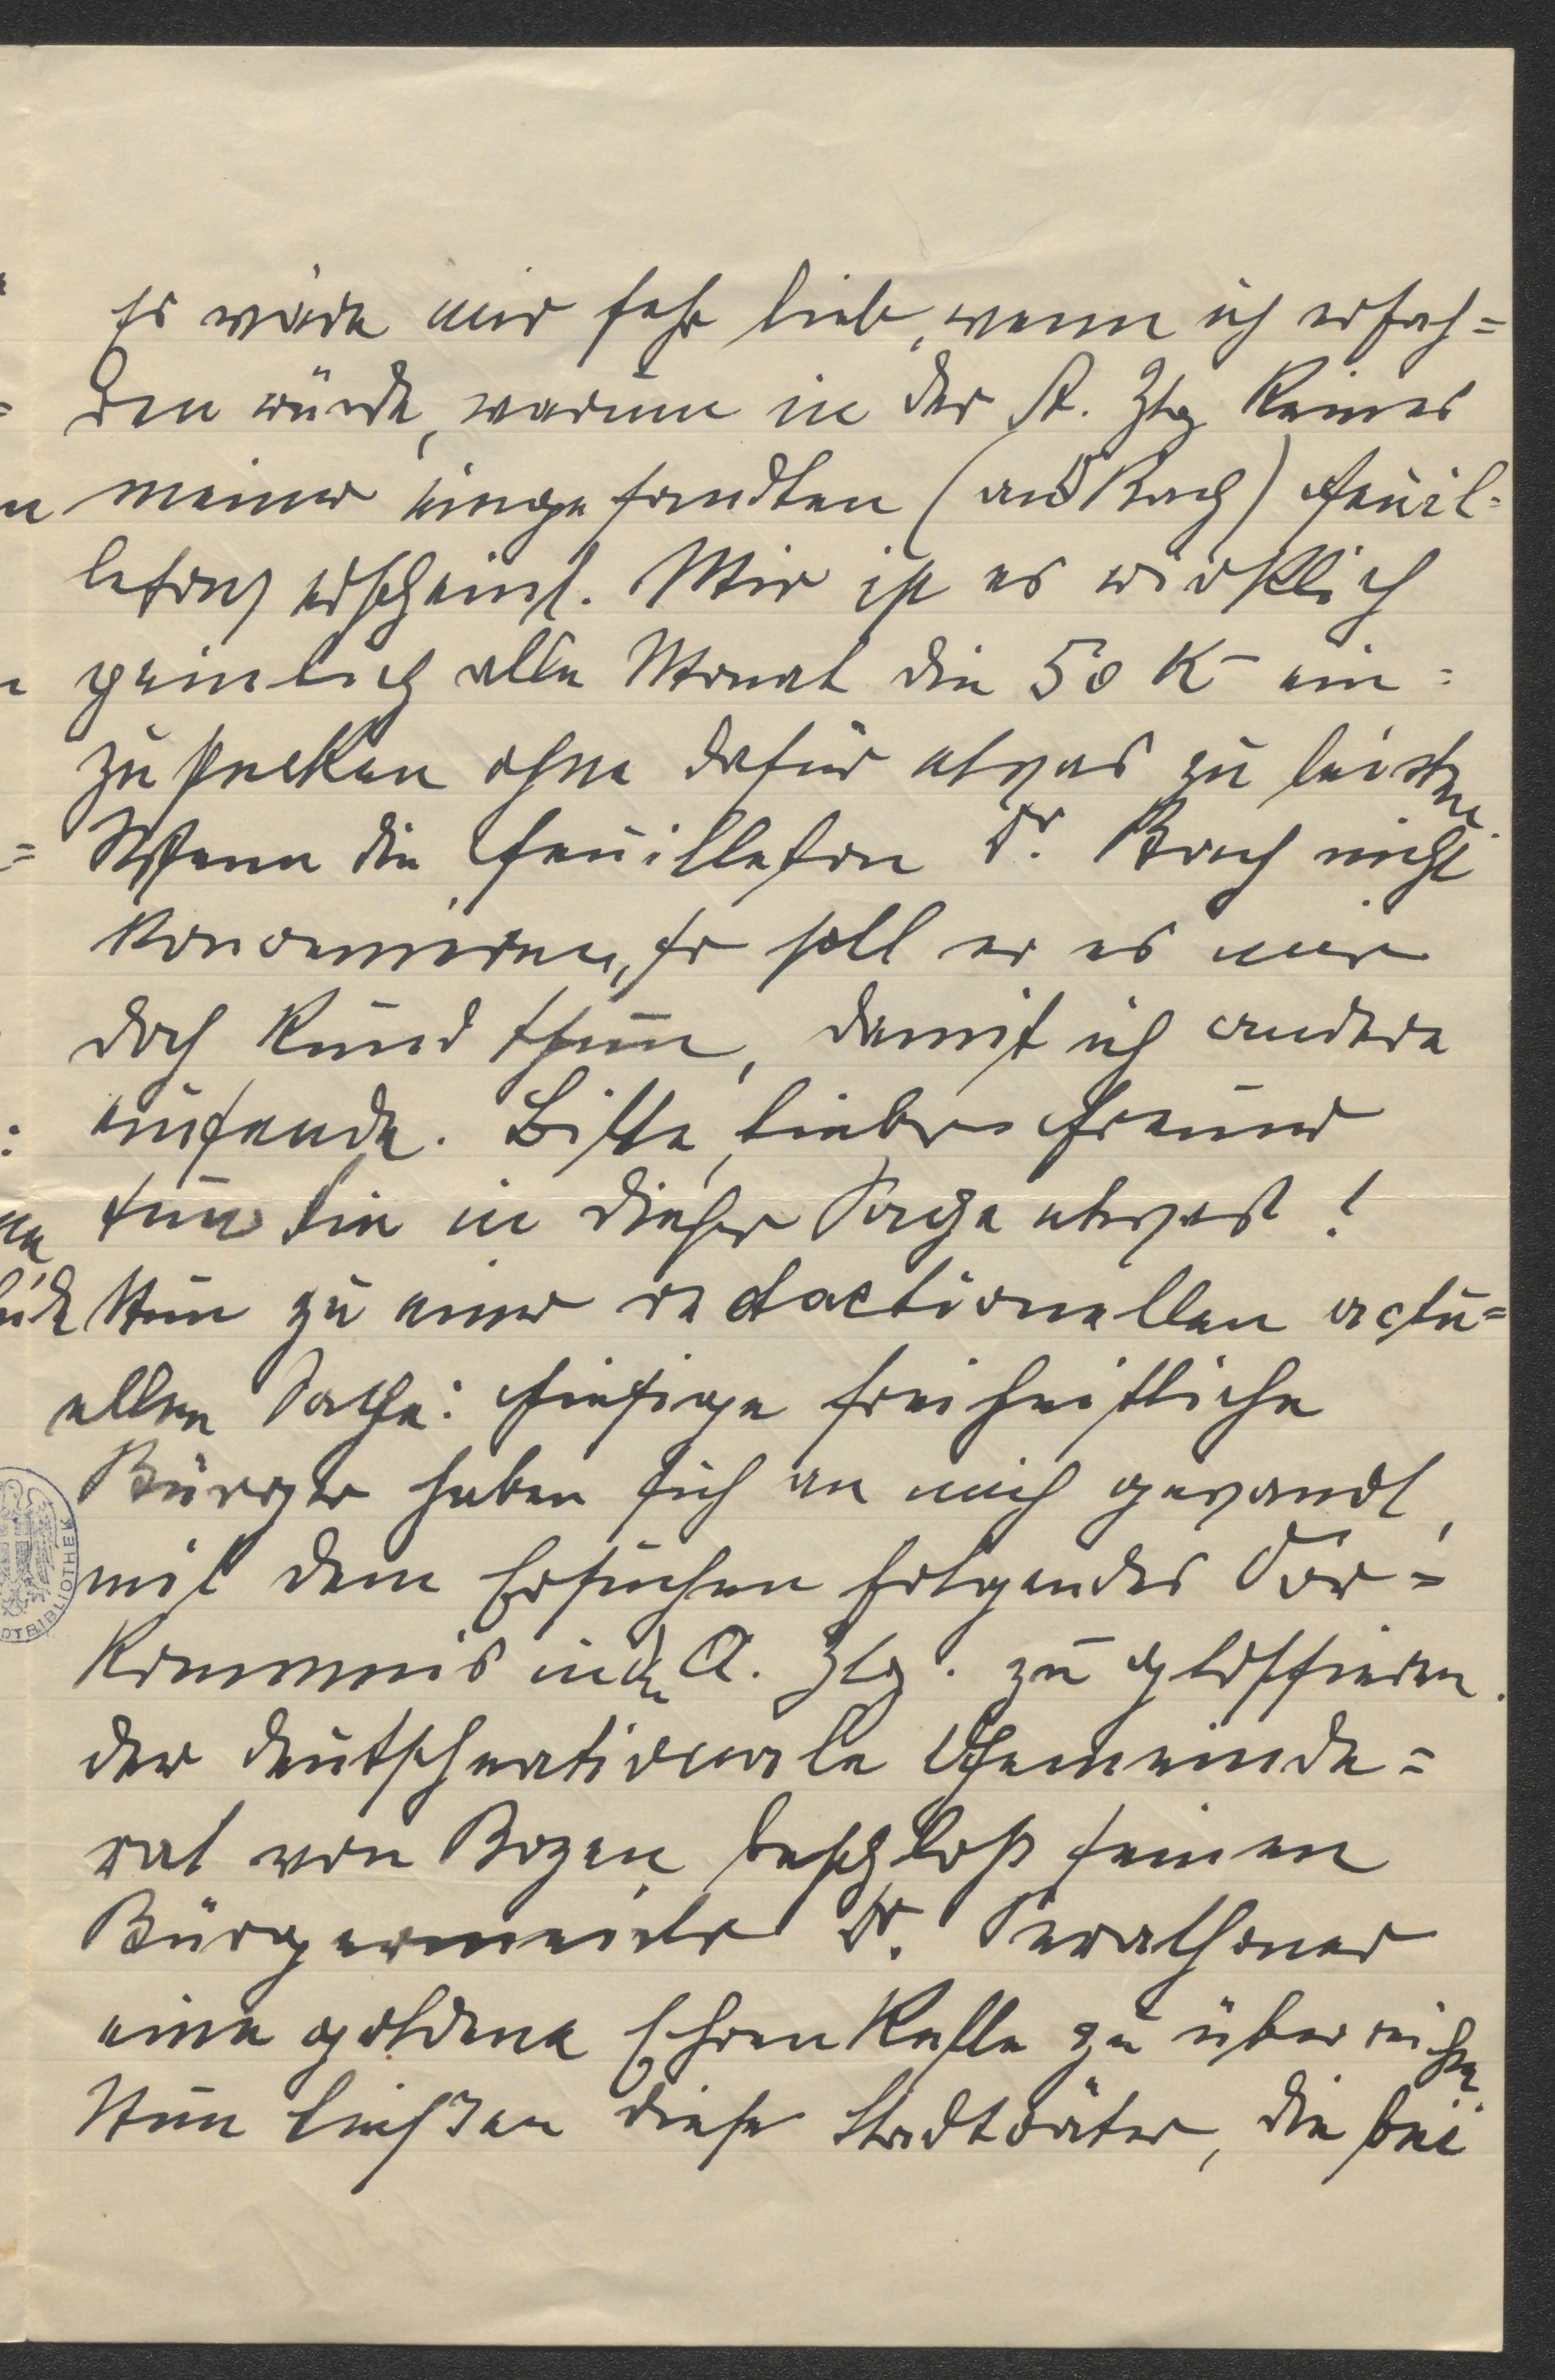 Es wäre mir sehr lieb, wenn ich erfah=
ren würde, warum in der A. Ztg. keines
meiner eingesandten (an Dr Bach) Feuil=
letons erscheint. Mir ist es wirklich
peinlich alle Monat die 50 K- ein=
zustecken ohne dafür etwas zu leisten.
Wenn die Feuilleton Dr. Bach nicht
konvenieren, so soll er es mir
doch kund thun, damit ich andere
einsende. Bitte, lieber Freund
tun Sie in dieser Sache etwas!
Nun zu einer redactionellen actu=
ellen Sache: Hiesige freiheitliche
Bürger haben sich an mich gewandt,
mit dem Ersuchen folgendes Vor=
kommnis in der A. Ztg. zu glossieren.
der deutschnationale Gemeinde=
rat von Bozen beschloß seinen
Bürgermeister Dr. Perathoner
eine goldene Ehrenkette zu überreichen
Nun ließen diese Stadtväter, die bei
BIBLIOTHEK